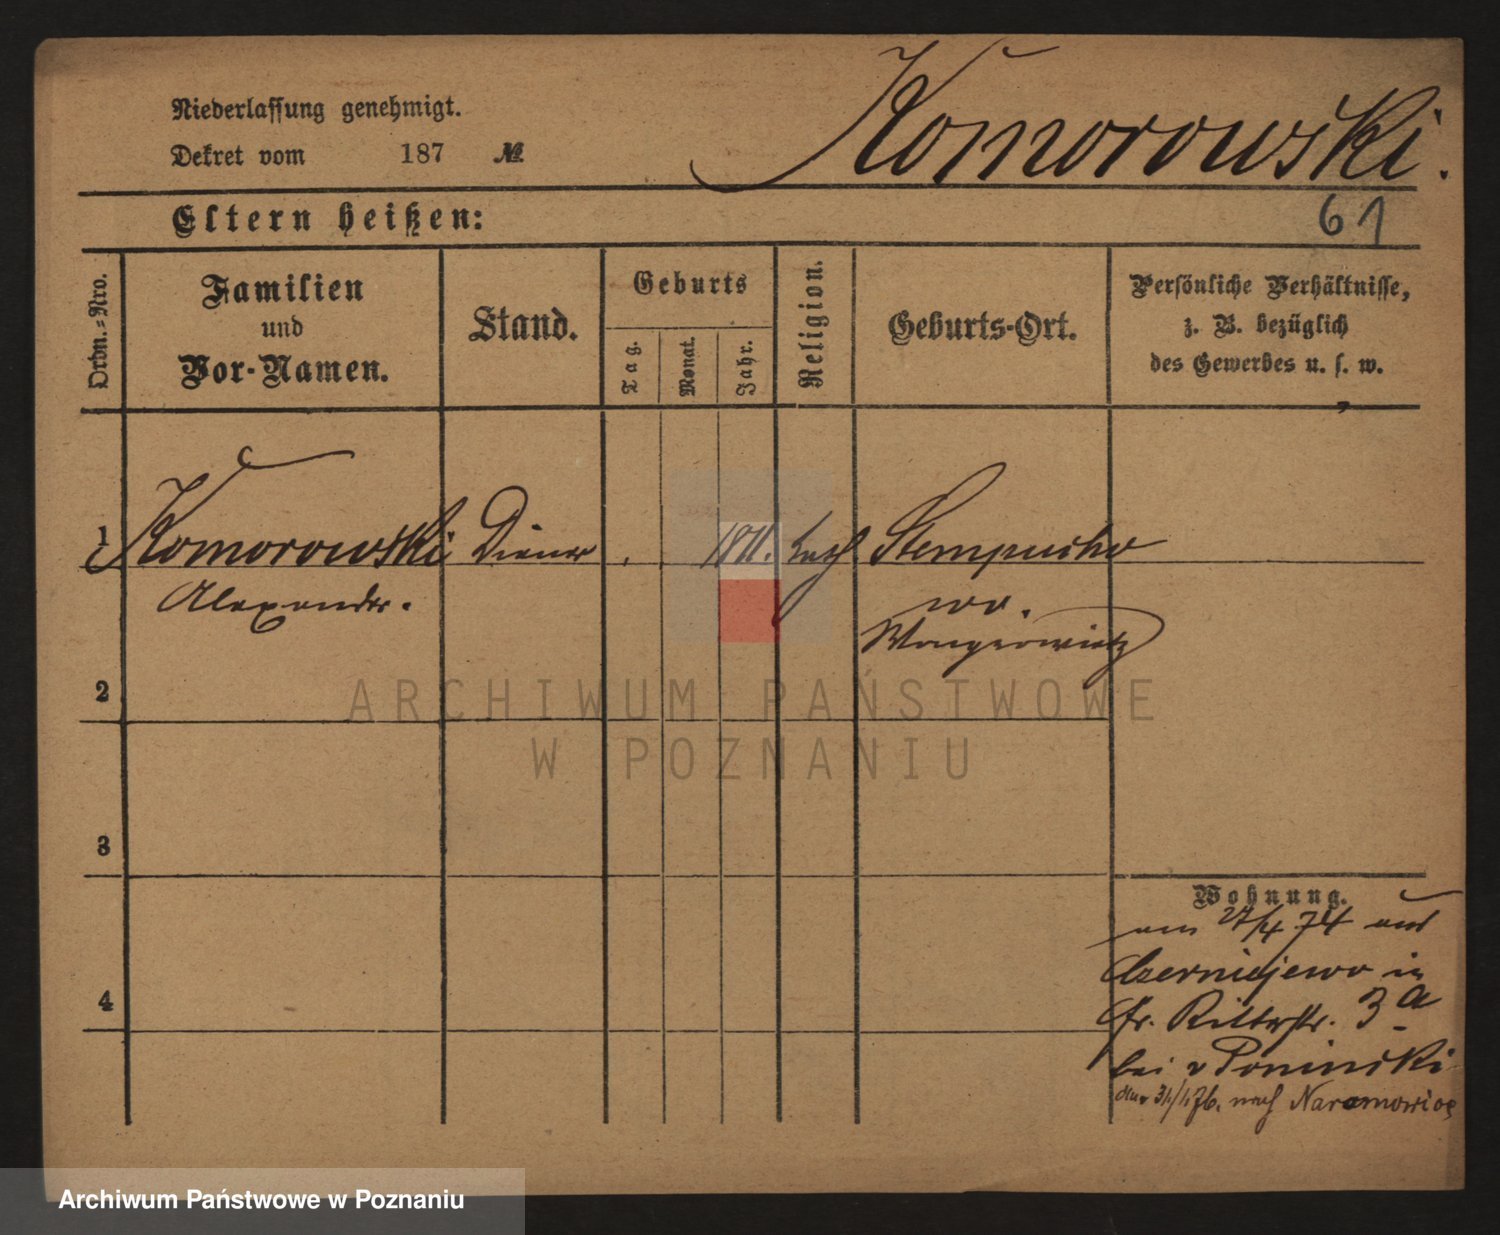 Niederlassung genehmigt.
Dekret vom 187 №
Komorowski.
Eltern heißen:
61
Ordn.=Nro.
Familien
und
Vor-Namen.
Stand.
Geburts
Tag.
Monat.
Jahr.
Religion.
Geburts-Ort.
Persönliche Verhältnisse,
z. B. bezüglich
des Gewerbes u. s. w.
1
Komorowski Diener 1811. kath Stempucho
Alexander.
wo.
Wongrowietz
2
3
4
Wohnung.
am 27/4 74 aus
Czerniejewo in
Gr. Ritterstr. 3a
bei v Poninski
nach Naramowice
ARCHIWUM PAŃSTWOWE
W POZNANIU
Archiwum Państwowe w Poznaniu